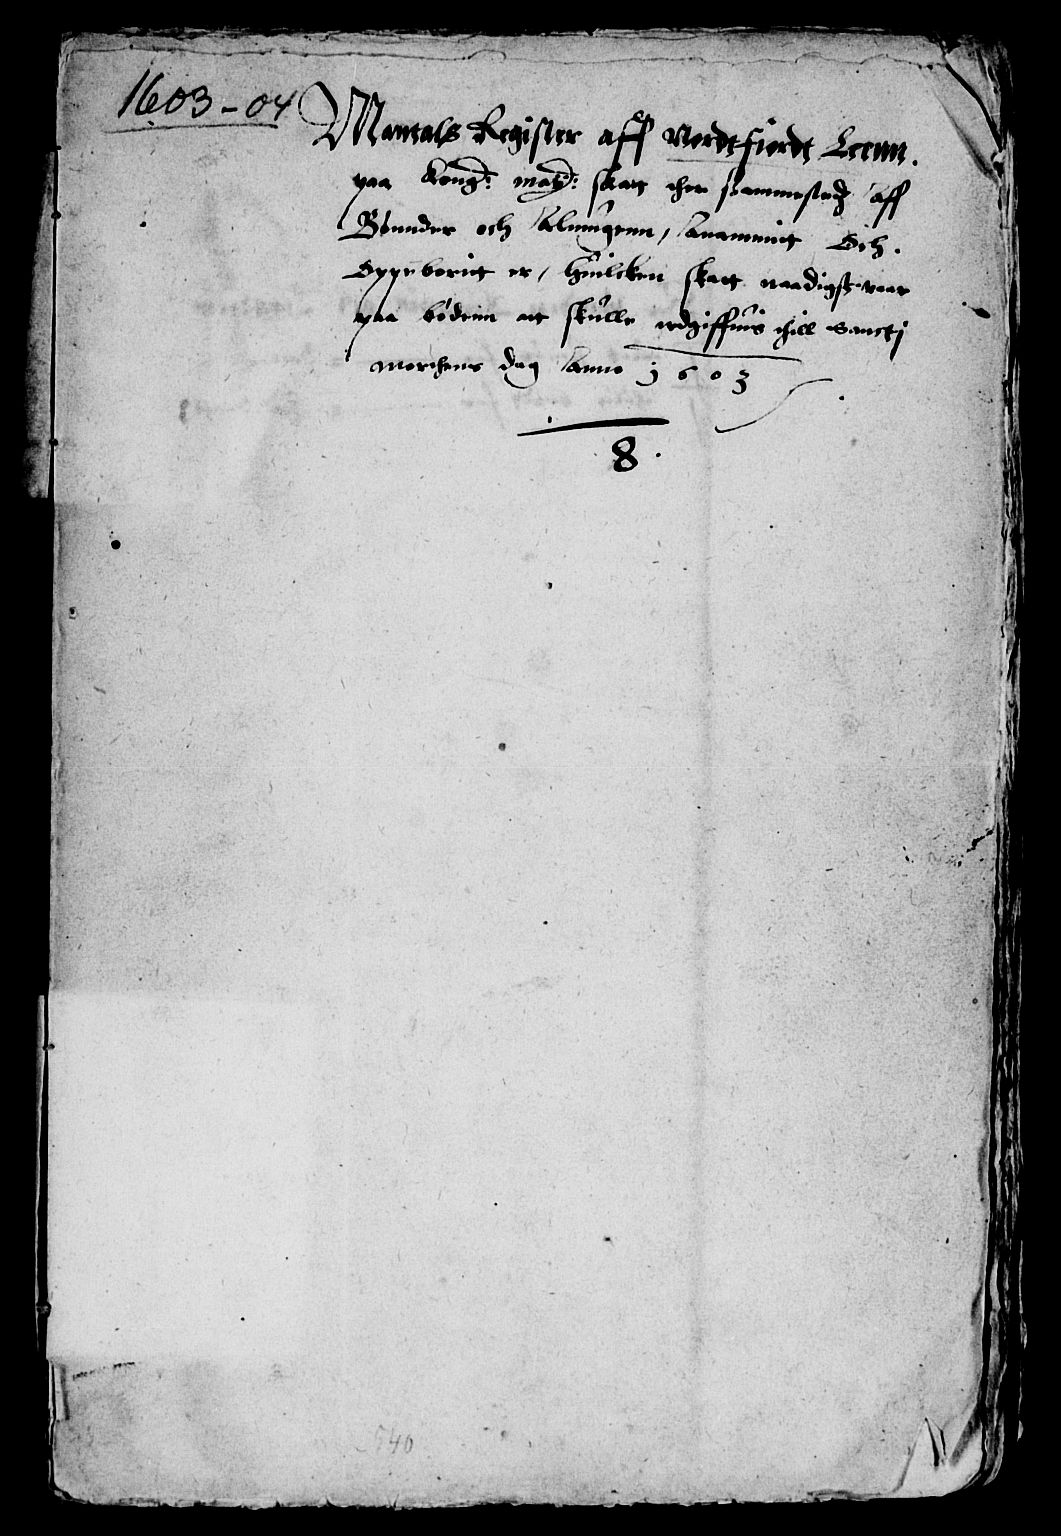 1603-04
Mantals Register aff Nordtfiordt Leenn.
paa Kong: may: skatt ther sammestedtz aff
Bønnder och Almŭgenn, Anammitt Och.
Oppeborit er, Hŭilcken skatt naadigst vaar
paa bødenn att skŭlle vdgiffŭis thill Sancti
Morthens dag Anno 1603
8
540